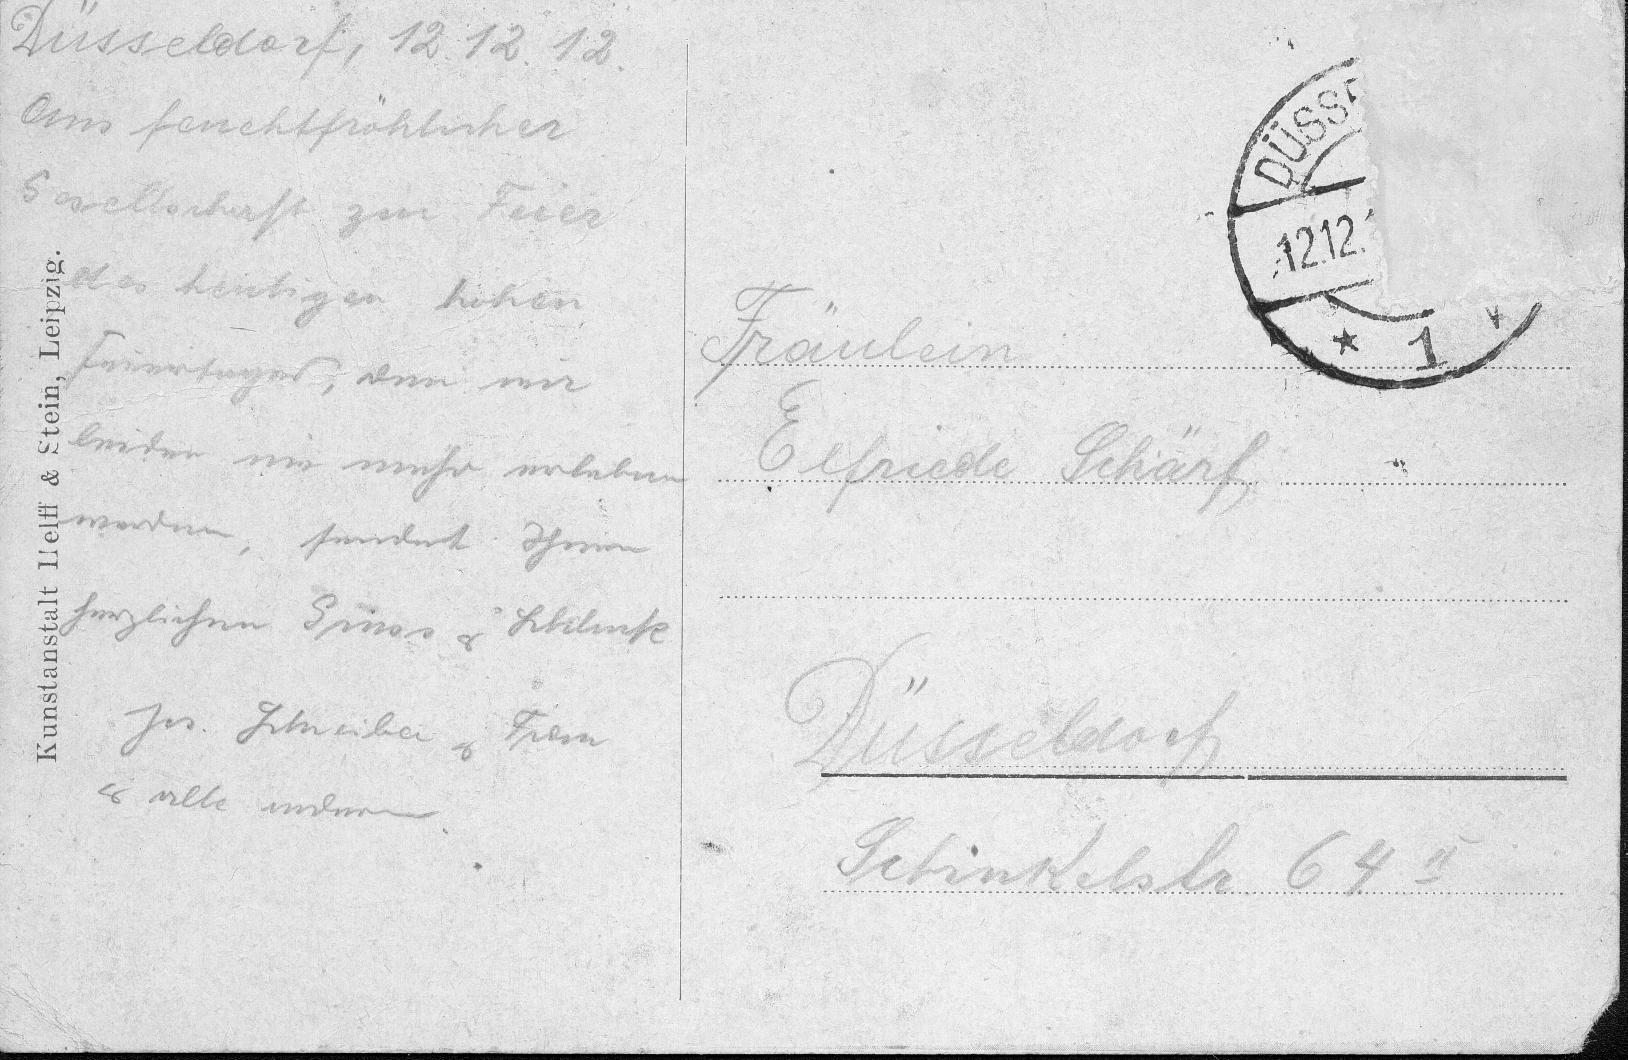 Düsseldorf, 12.12.12.
Aus feuchtfröhlicher
Gesellschaft zur Feier
des heutigen hohen
Feiertages, den wir
leider nie mehr erleben
werden, sendet Ihnen
herzlichen Gruss &
Jos. Schreiber & Frau
& alle andern.
Kunstanstalt Helff & Stein, Leipzig.
DÜSS
12.12.1
* 1 v
Fräulein
Elfriede Schärf
Düsseldorf
Schinkelstr. 64 II